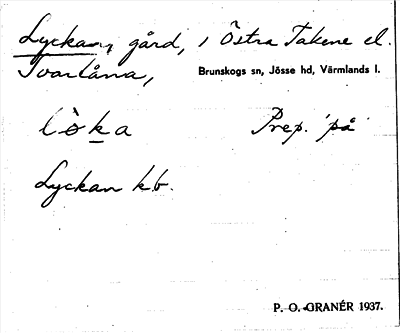 Lyckan, gård, i Östra Takene el.
Tvarlåna,
Brunskogs sn, Jösse hd, Värmlands l.
lò̀ka Prep. 'på'
Lyckan kb.
P. O. GRANÉR 1937.